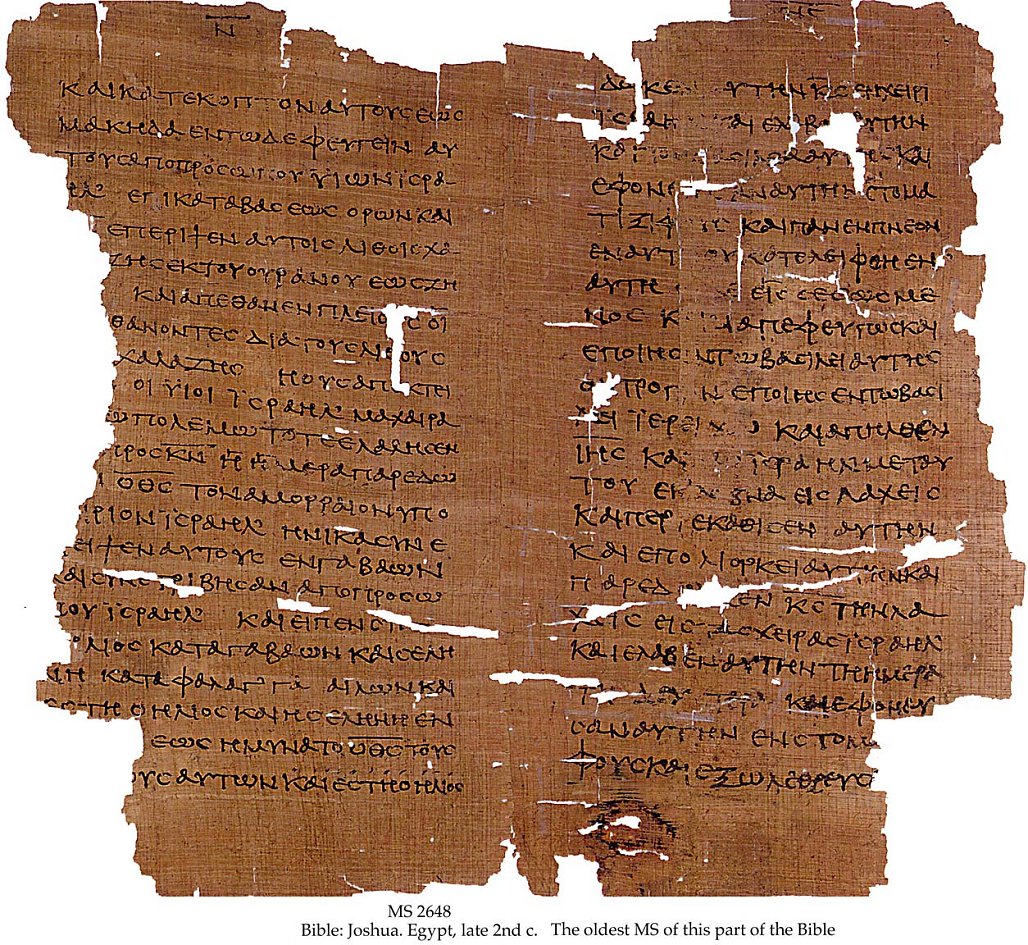 Ν
ΚΑΙΚΑΤΕΚΟΠΤΟΝΑΥΤΟΥϹΕΩϹ
ΜΑΚΗΔΑ ΕΝΤΩΔΕΦΕΥΓΕΙΝ ΑΥ
ΤΟΥϹΑΠΟΠΡΟϹΩΠΟΥ ΥΙΩΝΙϹΡΑ
ΗΛ ΕΠΙΚΑΤΑΒΑϹΕΩϹ ΟΡΩΝΚΑΙ
ΕΠΕΡΙΨΕΝ ΑΥΤΟΙϹ ΛΙΘΟΙϹΧΑ
ΖΗϹΕΚΤΟΥΟΥΡΑΝΟΥ ΕΩϹΖΗ
ΚΑΙΑΠΕΘΑΝΕΝΠΛΕΙΟΥϹ ΟΙ
ΘΑΝΟΝΤΕϹ ΔΙΑΤΟΥϹΛΙΘΟΥϹ
ΧΑΛΑΖΗϹ ΗΟΥϹΑΠΕΚΤΕΙ
ΟΙ ΥΙΟΙ ΙϹΡΑΗΛ ΜΑΧΑΙΡΑ
ΩΠΟΛΕΜΩ ΤΟΤΕΕΛΑΛΗϹΕΝ
ΠΡΟϹΚΝ Η ΗΜΕΡΑΠΑΡΕΔΩ
ΟΘϹ ΤΟΝΑΜΟΡΡΑΙΟΝΥΠΟ
ΡΙΟΝΙϹΡΑΗΛ ΗΝΙΚΑϹΥΝΕ
ΕΙΨΕΝΑΥΤΟΥϹ ΕΝΓΑΒΑΩΝ
ΚΑΙϹΥΝ ΡΙΒΗϹΑΝ ΑΠΟΠΡΟϹΩ
ΠΟΥ ΙϹΡΑΗΛ ΚΑΙΕΙΠΕΝ
ΛΙΟϹ ΚΑΤΑΓΑΒΑΩΝ ΚΑΙϹΕΛΗ
ΝΗ ΚΑΤΑΦΑΛΑΓΓΑ ΑΙΛΩΝΚΑΙ
ΕϹΤΗΟΗΛΙΟϹ ΚΑΙΗϹΕΛΗΝΗΕΝ
ΕΩϹ ΗΜΥΝΑΤΟ ΟΘϹΤΟΥϹ
ΟΥϹΑΥΤΩΝ ΚΑΙΕϹΤΗΟΗΛΙΟϹ
ΝΕ
ΔΩΚΕΝ ΥΤΗΝΚϹΕΝΧΕΙΡΙ
ΙϹΡΑΗ ΑΙΕΛΑΒ ΥΤΗΝ
ΚΑΙ ΑΥΤΗϹΚΑΙ
ΕΦΟΝΕ ΑΝΑΥΤΗΝ ϹΤΟΜΑ
ΤΙΞΙΦ ΚΑΙΠΑΝΕΝΠΝΕΟΝ
ΕΝΑΥΤ ΟΥΚΑΤΕΛΕΙΦΘΗΕΝ
ΑΥΤΗ ΕΙϹϹΕϹΩϹΜΕ
ΝΟϹ Κ ΔΙΑΠΕΦΕΥΓΩϹΚΑΙ
ΕΠΟΙΗϹ ΝΤΩΒΑϹΙΛΕΙΑΥΤΗϹ
Ο ΤΡΟΠ Ν ΕΠΟΙΗϹΕΝΤΩΒΑϹΙ
ΛΕΙ ΙΕΡΕΙΧ ΚΑΙΑΠΗΛΘΕΝ
ΙΗϹ ΚΑΙ ΙϹΡΑΗΛΜΕΤΑΥ
ΤΟΥ ΕΚ ΛΕΒΝΑ ΕΙϹ ΛΑΧΕΙϹ
ΚΑΙΠΕΡΙΕΚΑΘΙϹΕΝ ΑΥΤΗΝ
ΚΑΙ ΕΠΟΛΙΟΡΚΕΙΑΥΤΗΝΚΑΙ
ΠΑΡΕΔ ΚΕΝ ΚϹ ΤΗΝΛΑ
ΧΕΙϹ ΕΙϹΤΑϹΧΕΙΡΑϹΙϹΡΑΗΛ
ΚΑΙΕΛΑΒΕΝΑΥΤΗΝΤΗΗΜΕΡΑ
ΚΑΙΕΦΟΝΕΥ
ϹΑΝΑΥΤΗΝ ΕΝϹΤΟΜΑ
ΦΟΥϹΚΑΙΕΞΩΛΕΘΡΕΥϹ
MS 2648
Bible: Joshua. Egypt, late 2nd c. The oldest MS of this part of the Bible